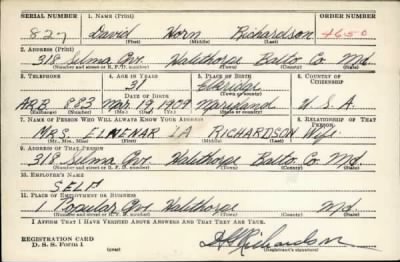 SERIAL NUMBER 1. NAME (Print) ORDER NUMBER
827 David Horn Richardson 4650
(First) (Middle) (Last)
2. ADDRESS (Print)
318 Selma Ave. Halethorpe Balto Co Md.
(Number and street or R. F. D. number) (Town) (County) (State)
3. TELEPHONE 4. AGE IN YEARS 5. PLACE OF BIRTH 6. COUNTRY OF CITIZENSHIP
31 Elkridge
DATE OF BIRTH (Town or county)
ARB. 883 Mar. 19, 1909 Maryland U. S. A.
(Exchange) (Number) (Mo.) (Day) (Yr.) (State or country)
7. NAME OF PERSON WHO WILL ALWAYS KNOW YOUR ADDRESS 8. RELATIONSHIP OF THAT PERSON
MRS. ELMENAR LA RICHARDSON Wife
(Mr., Mrs., Miss) (First) (Middle) (Last)
9. ADDRESS OF THAT PERSON
318 Selma Ave. Halethorpe Balto Co. Md.
(Number and street or R. F. D. number) (Town) (County) (State)
10. EMPLOYER'S NAME
SELF
11. PLACE OF EMPLOYMENT OR BUSINESS
1 Popular Ave. Halethorpe Md.
(Number and street or R. F. D. number) (Town) (County) (State)
I AFFIRM THAT I HAVE VERIFIED ABOVE ANSWERS AND THAT THEY ARE TRUE.
REGISTRATION CARD
D. S. S. Form 1 (over) (Registrant's signature)